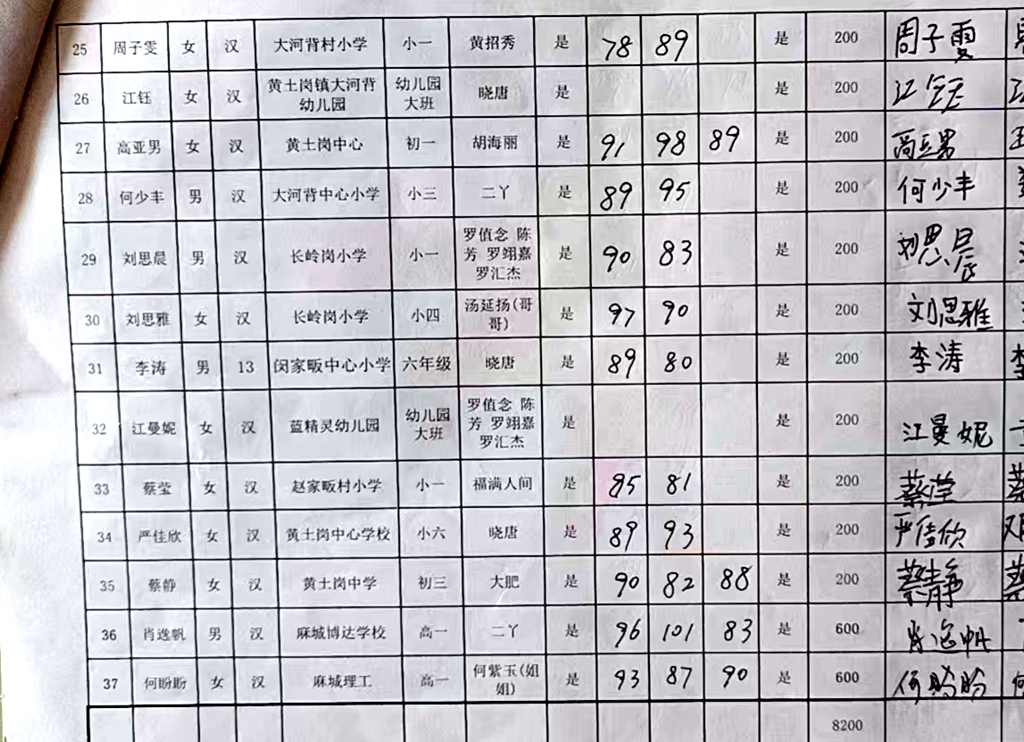 25 周子雯 女 汉 大河背村小学 小一 黄招秀 是 78 89 是 200 周子雯
26 江钰 女 汉 黄土岗镇大河背幼儿园 幼儿园大班 晓唐 是 是 200 江钰
27 高亚男 女 汉 黄土岗中心 初一 胡海丽 是 91 98 89 是 200 高亚男
28 何少丰 男 汉 大河背中心小学 小三 二丫 是 89 95 是 200 何少丰
29 刘思晨 男 汉 长岭岗小学 小一 罗值念 陈芳 罗翊嘉 罗汇杰 是 90 83 是 200 刘思晨
30 刘思雅 女 汉 长岭岗小学 小四 汤延扬(哥哥) 是 97 90 是 200 刘思雅
31 李涛 男 13 闵家畈中心小学 六年级 晓唐 是 89 80 是 200 李涛
32 江曼妮 女 汉 蓝精灵幼儿园 幼儿园大班 罗值念 陈芳 罗翊嘉 罗汇杰 是 是 200 江曼妮
33 蔡莹 女 汉 赵家畈村小学 小一 福满人间 是 85 81 是 200 蔡莹
34 严佳欣 女 汉 黄土岗中心学校 小六 晓唐 是 89 93 是 200 严佳欣
35 蔡静 女 汉 黄土岗中学 初三 大肥 是 90 82 88 是 200 蔡静
36 肖逸帆 男 汉 麻城博达学校 高一 二丫 是 96 101 83 是 600 肖逸帆
37 何盼盼 女 汉 麻城理工 高一 何紫玉(姐姐) 是 93 87 90 是 600 何盼盼
8200